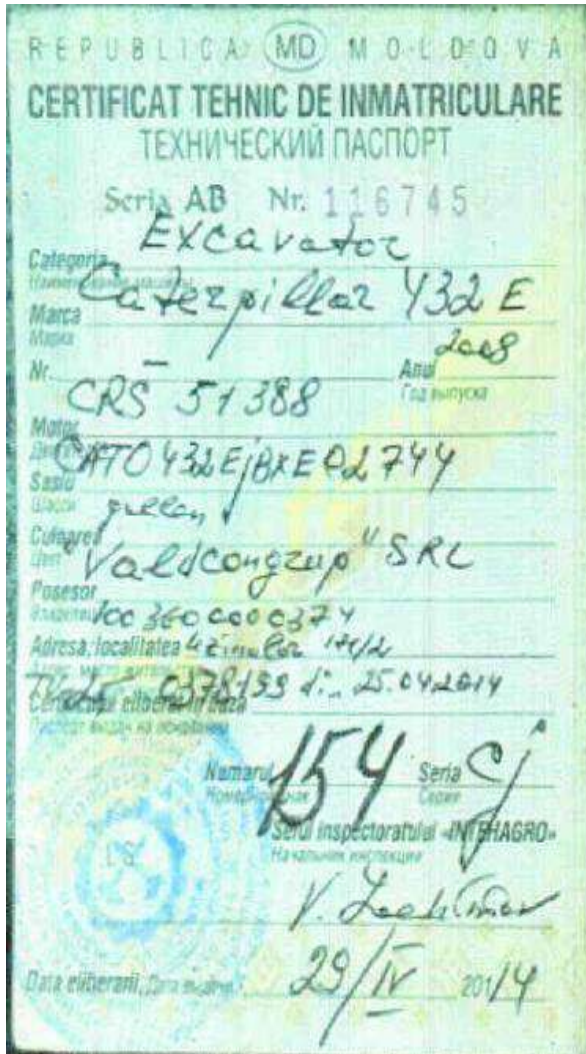 REPUBLICA MD MOLDOVA
CERTIFICAT TEHNIC DE INMATRICULARE
ТЕХНИЧЕСКИЙ ПАСПОРТ
Seria AB Nr. 116745
Excavator
Categoria
Наименование машины
Caterpillar 432 E
Marca
Марка
2008
Nr. – Anul
Год выпуска
CRS 51388
Motor
Двигатель
CAT0432EjBXE02744
Sasiu
Шасси
Culoarea
Цвет
"Valdcongrup" SRL
Posesor
Владелец
1003600000374
Adresa, localitatea Uzinelor
25.04.2014
Certificatul eliberat in baza
Паспорт выдан на основании
Numarul 154 Seria Cj
Серия
Seful inspectoratului «INTEHAGRO»
Начальник инспекции
L.S.
V.
Data eliberarii, Дата выдачи 29/IV 2014